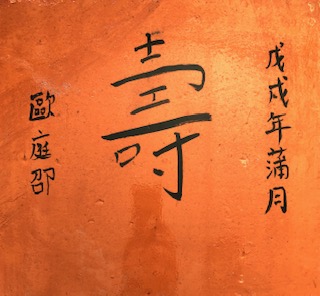 戊戌年蒲月
壽
歐庭邵